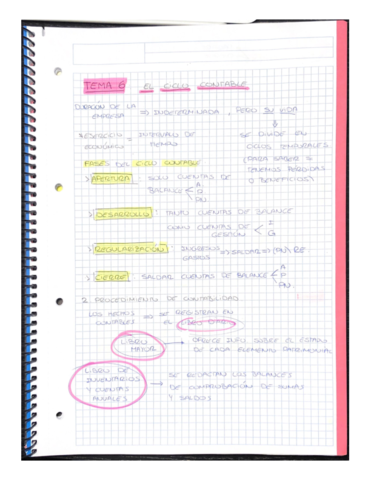 TEMA 6 EL CICLO CONTABLE
DURACIÓN DE LA EMPRESA => INDETERMINADA, PERO SU VIDA
SE DIVIDE EN
CICLOS TEMPORALES
(PARA SABER =
TENEMOS PÉRDIDAS
O BENEFICIOS?)
EJERCICIO ECONÓMICO = INTERVALO DE TIEMPO
FASES DEL CICLO CONTABLE
> APERTURA: SOLO CUENTAS DE BALANCE < A P PN
> DESARROLLO: TANTO CUENTAS DE BALANCE
COMO CUENTAS DE GESTIÓN < I G
> REGULARIZACIÓN: INGRESOS GASTOS => SALDAR =>
> CIERRE: SALDAR CUENTAS DE BALANCE < A P PN
2. PROCEDIMIENTO DE CONTABILIDAD
LOS HECHOS CONTABLES => SE REGISTRAN EN
EL LIBRO DIARIO
LIBRO MAYOR → OFRECE INFO SOBRE EL ESTADO
DE CADA ELEMENTO PATRIMONIAL
LIBRO DE
INVENTARIOS
Y CUENTAS
ANUALES
→ SE REDACTAN LOS BALANCES
DE COMPROBACIÓN DE SUMAS
Y SALDOS